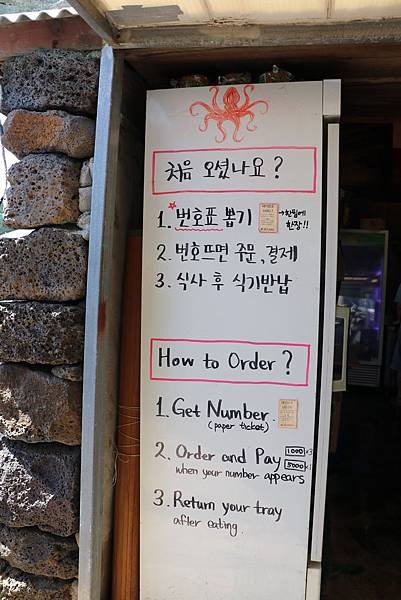 처음 오셨나요?
1. 번호표 뽑기 → 한팀에 한장!!
2. 번호뜨면 주문, 결제
3. 식사 후 식기반납
How to Order?
1. Get Number.
(paper ticket)
2. Order and Pay 1000 ×3
when your number appears 5000 ×1
3. Return your tray
after eating.